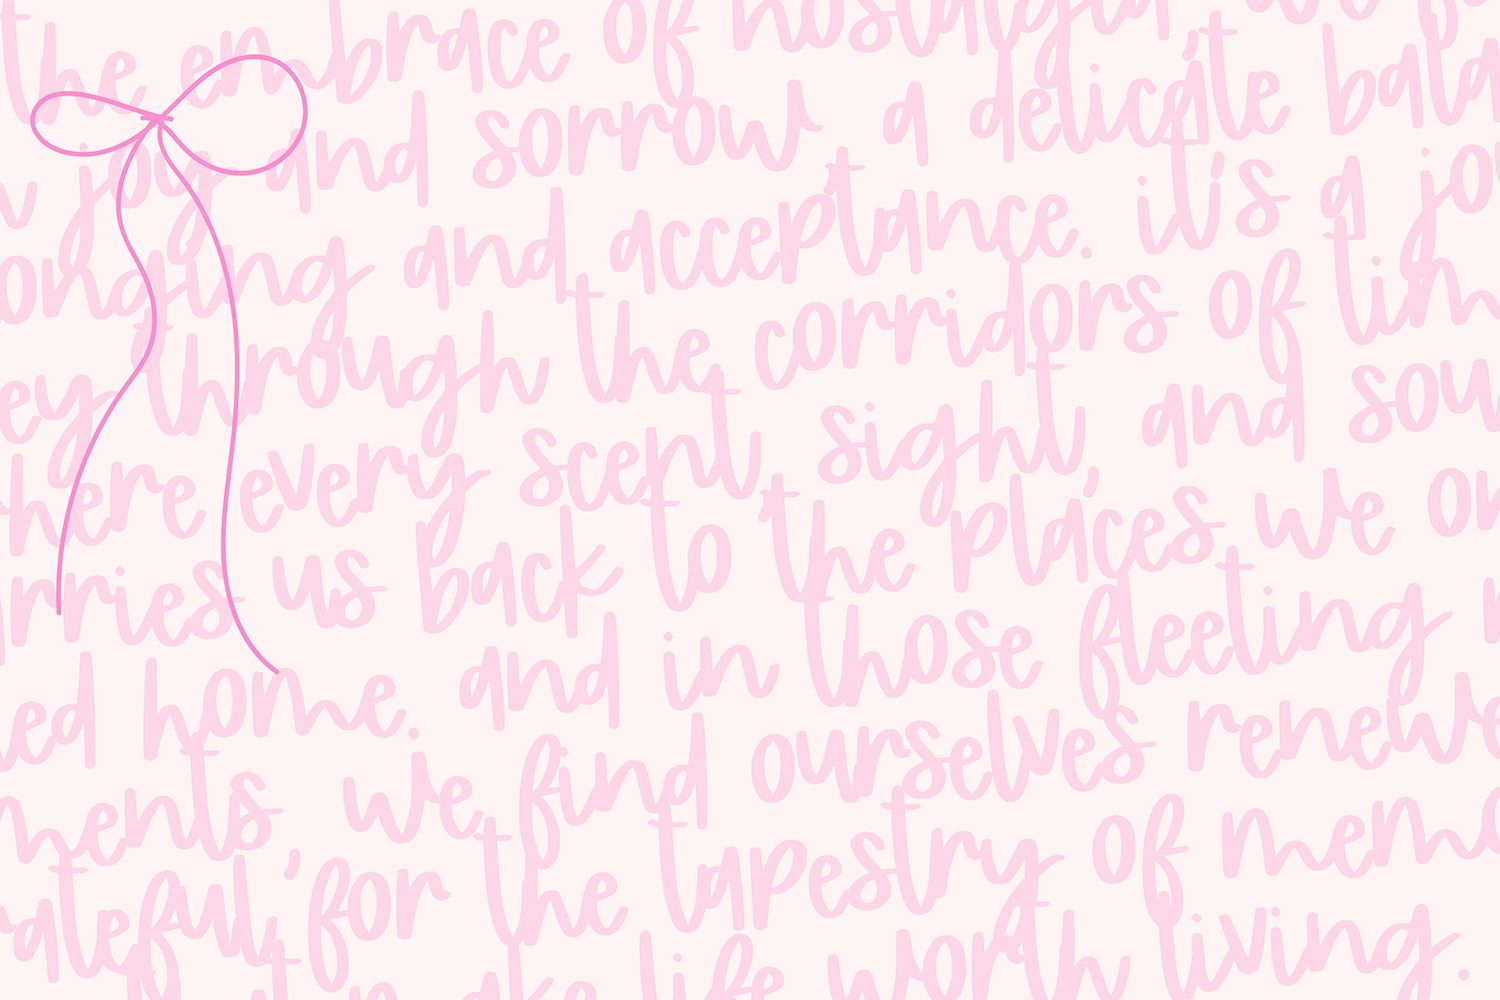 the embrace of nostalgia, we
joy and sorrow, a delicate bala
onging and acceptance. it's a jou
ey through the corridors of tim
here every scent, sight, and sou
rries us back to the places we on
ed home. and in those fleeting
ments, we find ourselves renewe
ateful for the tapestry of memo
make life worth living.